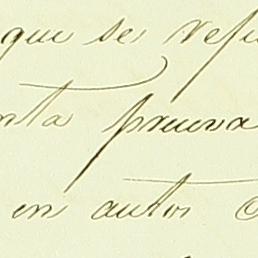 que se refi
nta prueva
en autos